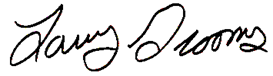 Larry Grooms